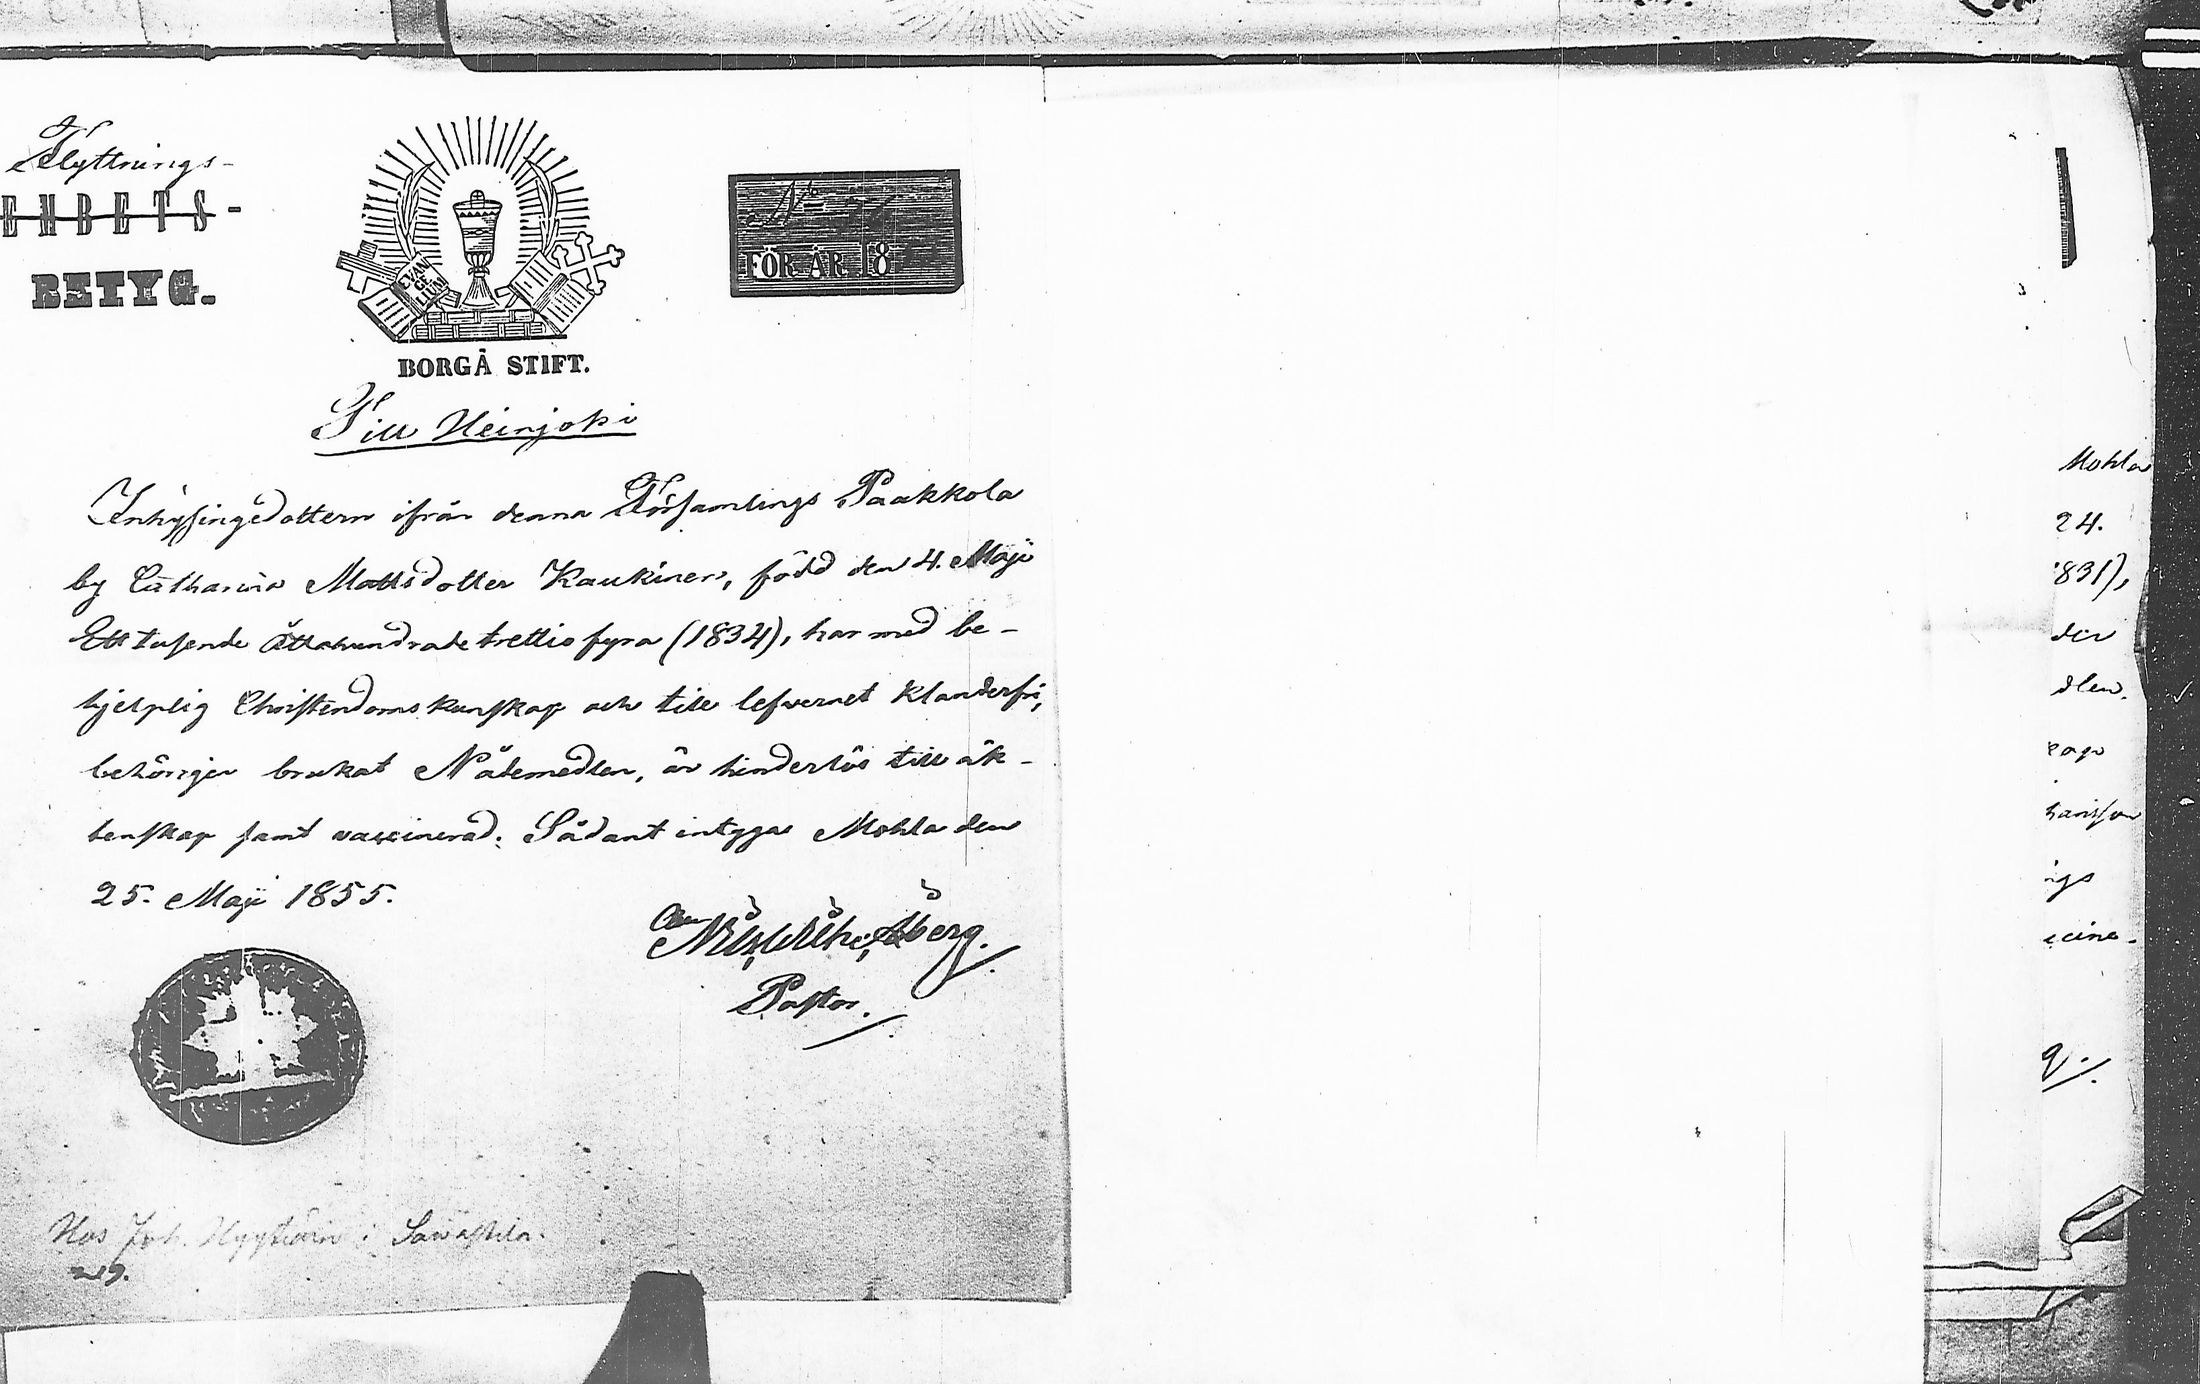 Flyttnings-
EMBETS-
BETYG.
EVAN
GE
LIUM
BORGÅ STIFT.
No
FÖR ÅR 18
Till Heinjoki
Inhysingedottern ifrån denna Församlings Paakkola
by Catharina Mattsdotter Kaukinen, född den 4. Maji
Ett tusende åttahundrade trettio fyra (1834), har med be-
hjelplig Christendomskunskap och till lefvernet klanderfri,
behörigen brukat Nådemedlen, är hinderlös till äk-
tenskap samt vaccinerad. Sådant intygar Mohla den
25. Maji 1855.
Åberg.
Pastor.
Hos Joh. i
219.
Mohla
24.
831),
der
dlen.
kap
hansson
ngs
ccine-
g.